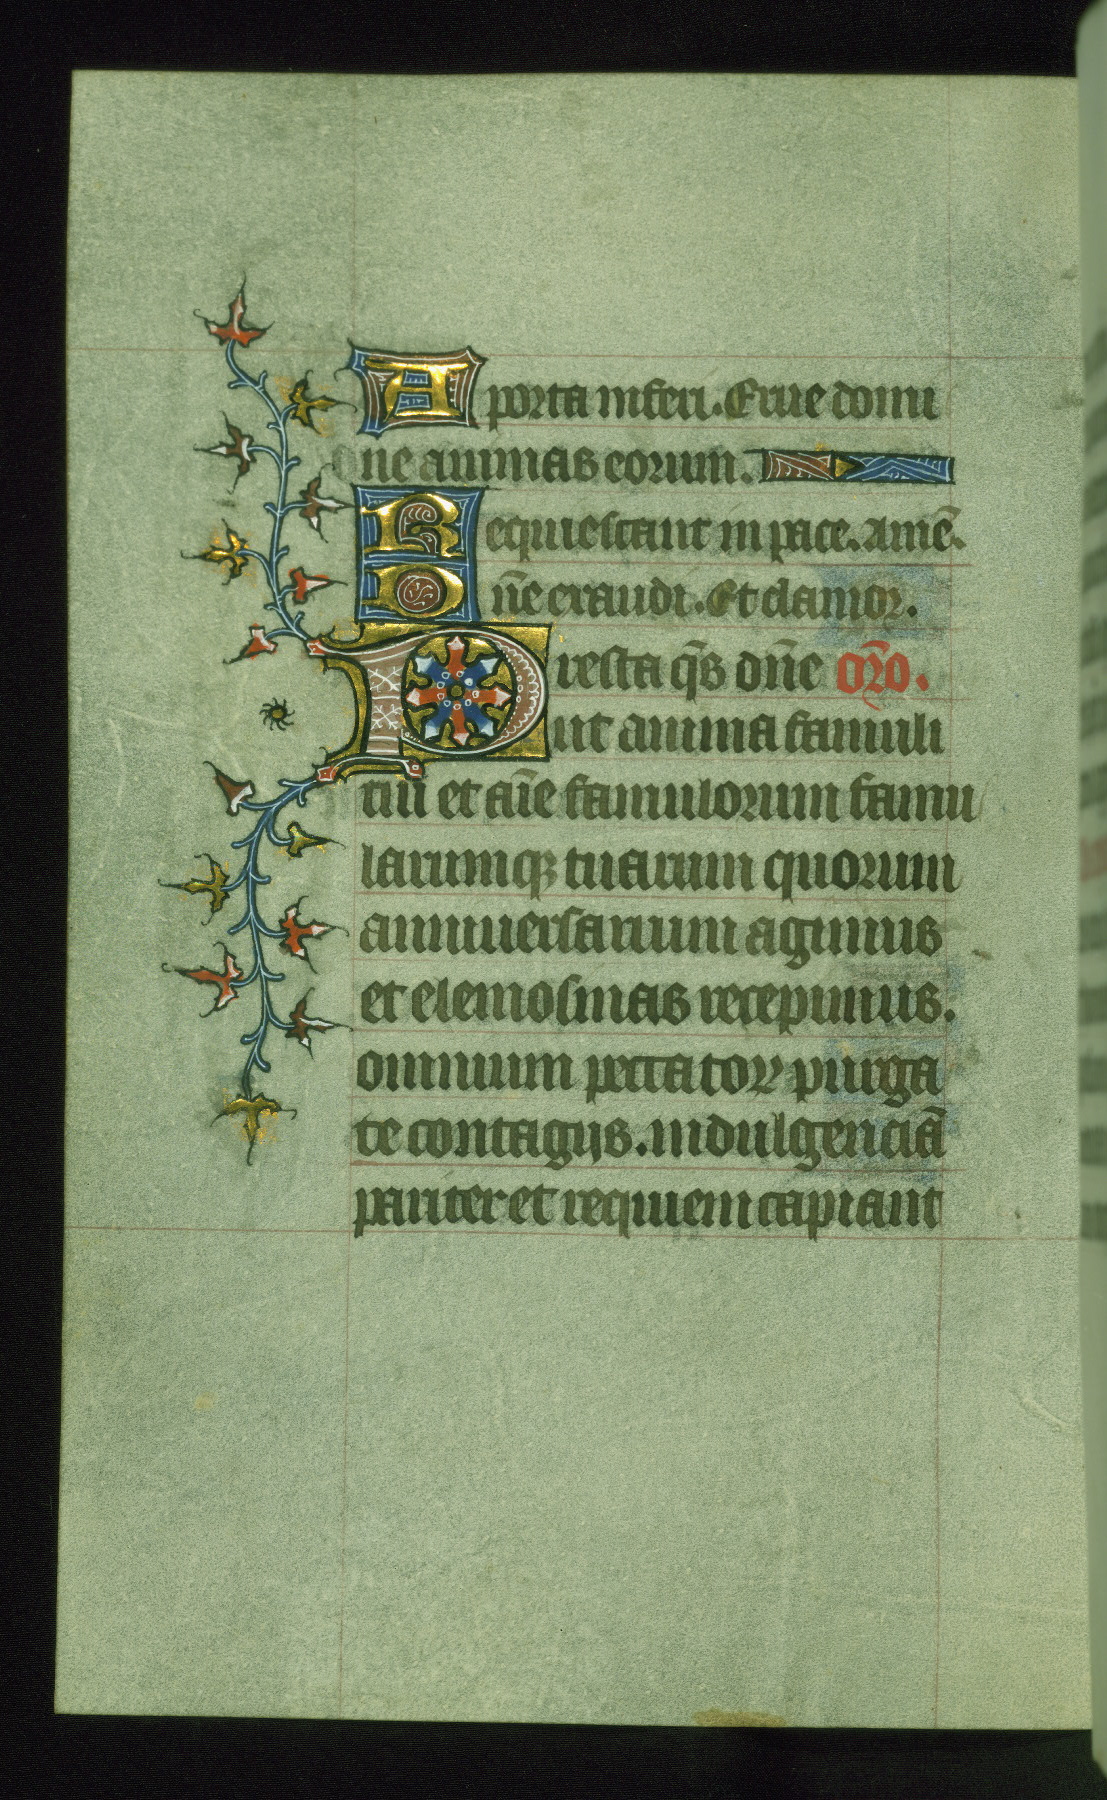 A porta inferi. Erue domi
ne animas eorum.
Requiescant in pace. Amē.
Dn̄e exaudi. Et clamor.
Presta qs̄ dn̄e oro̅.
ut anima famuli
tui et aīe famulorum famu
larumqꝫ tuarum quorum
anniuersarium agimus
et elemosinas recepimus.
omnium peccatoꝝ purga
te contagijs. indulgenciā
pariter et requiem capiant